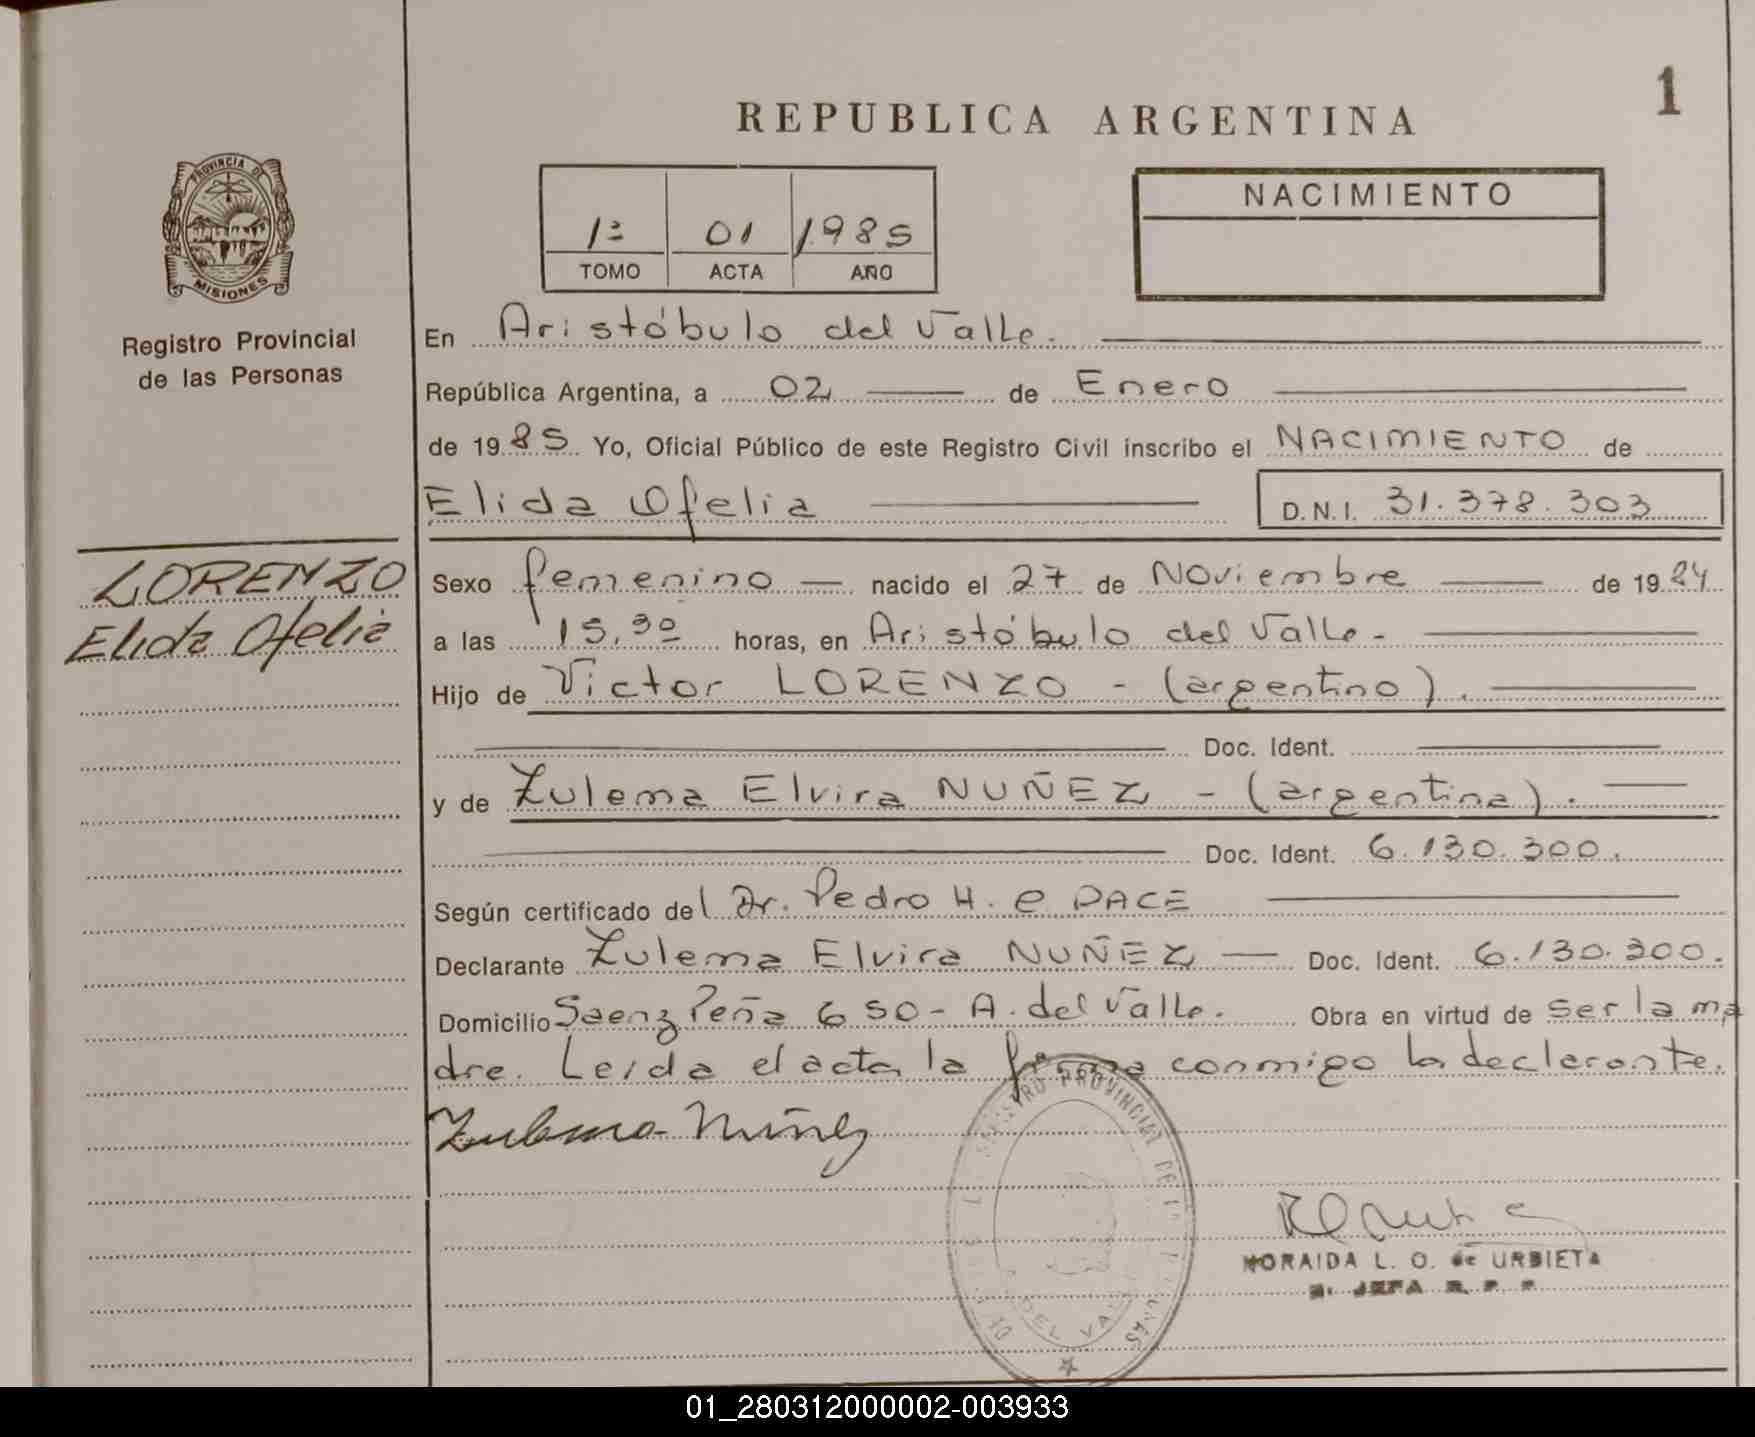 1
REPUBLICA ARGENTINA
PROVINCIA DE
MISIONES
Registro Provincial
de las Personas
1º 01 1985
TOMO ACTA AÑO
NACIMIENTO
En Aristóbulo del Valle.
República Argentina, a 02 de Enero
de 1985 Yo, Oficial Público de este Registro Civil inscribo el NACIMIENTO de
Elida Ofelia D.N.I. 31.378.303
LORENZO
Elida Ofelia
Sexo femenino nacido el 27 de Noviembre de 1984
a las 15,30 horas, en Aristóbulo del Valle-
Hijo de Victor LORENZO - (argentino).
Doc. Ident.
y de Zulema Elvira NUÑEZ - (argentina).
Doc. Ident. 6.130.300.
Según certificado del Dr. Pedro H. PACE
Declarante Zulema Elvira NUÑEZ Doc. Ident. 6.130.300.
Domicilio Saenz Peña 650- A. del Valle. Obra en virtud de ser la ma
dre. Leida el acta la firma conmigo la declarante.
Zulema Nuñez
REGISTRO PROVINCIAL DE
DEL VALLE
NORAIDA L. O. de URBIETA
JEFA R. P. P.
01_280312000002-003933